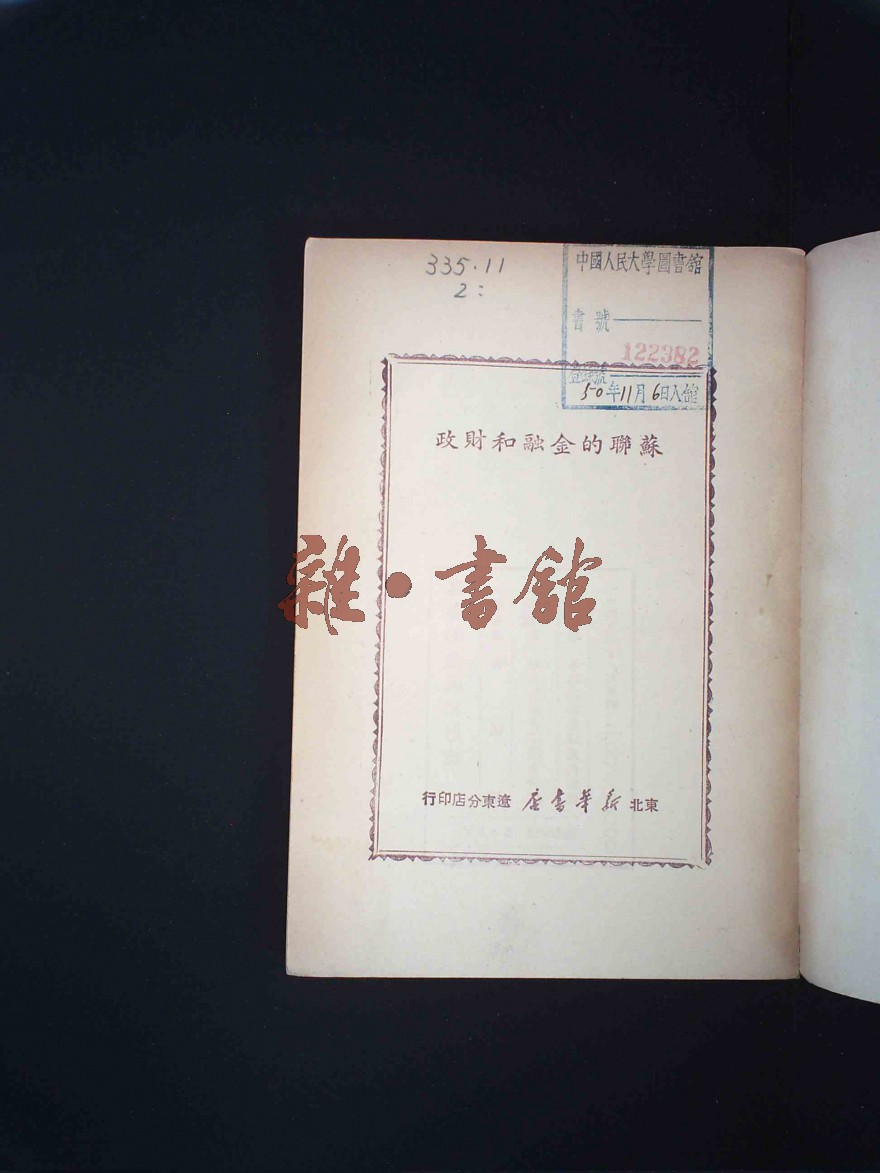 335·11
2:
中國人民大學圖書館
書號
122382
登錄號
50年11月6日入館
蘇聯的金融和財政
雜·書館
東北新華書店遼東分店印行